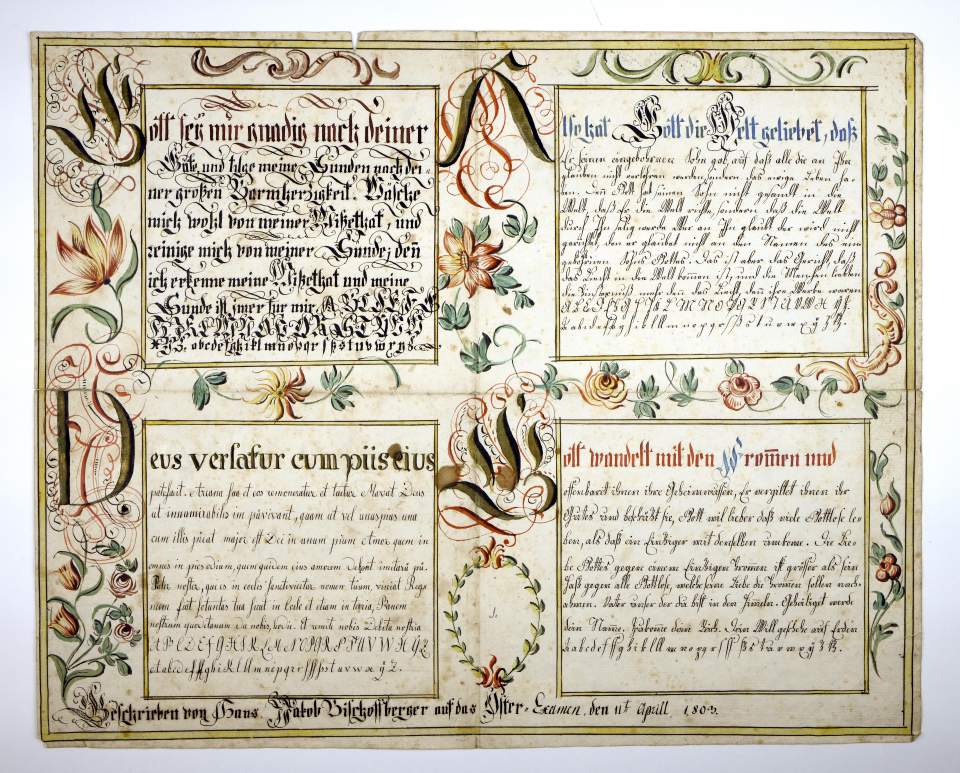 Gott seÿ mir gnädig nach deiner
Güte, und tilge meine Sünden nach dei-
ner großen Barmherzigkeit. Wasche
mich wohl von meiner Mißethat, und
reinige mich von meiner Sünde; deñ
ich erkenne meine Mißethat und meine
Sünde ist im̃er für mir. A. B. C. D. E. F. G
H I K L M N O P Q R S T U V W
X Y Z. abcdefghiklmnopqrſßstuvwxyz
Also hat Gott die Welt geliebet, daß
Er seinen eingebohrnen Sohn gab, auf daß alle die an Ihn
glauben nicht verlohren werden, sondern das ewige Leben ha-
ben. Deñ Gott hat seinen Sohn nicht gesandt in die
Welt, daß Er die Welt richte, sondern daß die Welt
durch Ihn selig werde. Wer an Ihn glaubt der wird nicht
gerichtet, wer aber nicht glaubet an den Namen des ein
gebohrnen Sohns Gottes. Das ist aber das Gericht, daß
das Liecht in die Welt kom̃en ist, und die Menschen liebten
die Finsternuß mehr dan das Liecht, deñ ihre Werke waren
A B C D E F G H I K L M N O P Q R S T U V W X Y Z.
a b c d e f g h i k l l m n o p q r ſ ß s t u v w x ÿ z tz.
Deus versatur cum piis eius
patefacit. Arcana sua et eos remuneratur et tutur Mavat Deus
ut innumirabiles im pii vivant, quam ut vel unus pius una
cum illis pereat major est Dei in unum pium Amor quem in
omnes in pios odium, quem quidem eius amorem debent imitari pii.
Pater noster, qui es in coelis sanctificetur nomen tuum, veniat Regn
num fiat voluntas tua sicut in Coelo et etiam in terra, Panem
nostrum quotidianum da nobis, hodie. Et remit nobis Debita nostra
A B C D E F G H I K L M N O P Q R S T U V W X Y Z
a b c d e f f g h i k l l m n o p q r ſ ſſ ß s t u v w x ÿ Z.
Gott wandelt mit den From̃en und
offenbaret ihnen ihre Geheimnüssen, Er vergiltet ihnen ihr
Gutes und beschützt sie, Gott wil lieber daß viele Gottlose le-
ben, als daß ein Einziger mit denselben umkome. Die Lie-
be Gottes gegen einem Einzigen From̃en ist größer als sein
Haß gegen alle Gottlose, welche seine Liebe die From̃en sollen nach-
ahmen. Vater unser der du bist in den Him̃eln. Geheiliget werde
dein Name. Zukom̃e dein Reich. Dein Will geschehe auf Erden
a b c d e f f g h i k l l m n o p q r ſ ſſ ß s t u v w x ÿ z tz.
Geschrieben von Hans Jakob Bischoffberger auf das Oster-Examen, den 11t. Aprill 1803.